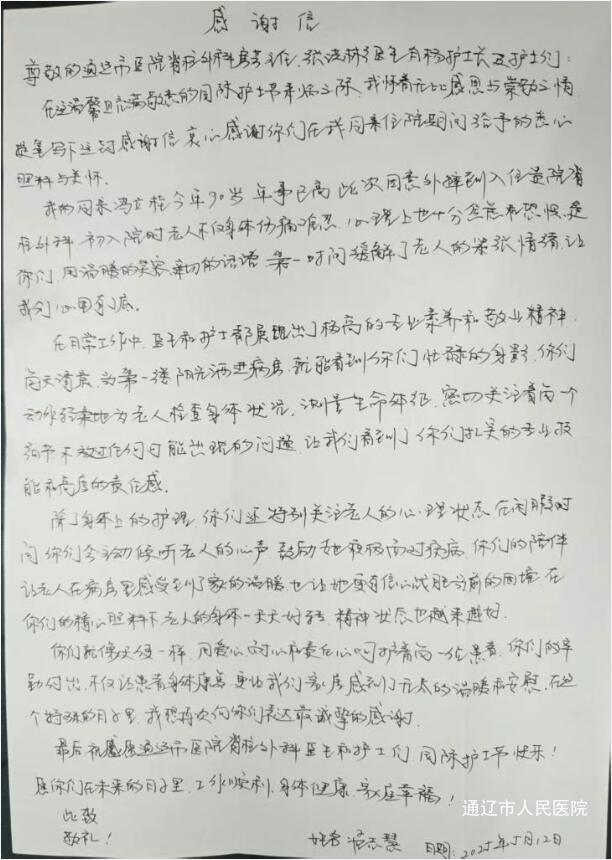 感谢信
尊敬的通辽市医院脊柱外科主任、张医生和杨护士长及护士们：
在这温馨且充满敬意的国际护士节来临之际，我怀着无比感恩与崇敬之情
提笔写下这封感谢信，衷心感谢你们在我母亲住院期间给予的悉心
照料与关怀。
我的母亲今年90岁，年事已高，此次因意外摔倒入住贵院脊
柱外科，初入院时老人不仅身体伤痛难忍，心理上也十分焦虑和恐惧，是
你们，用温暖的笑容、亲切的话语，第一时间缓解了老人的紧张情绪，让
我们心里有了底。
在日常工作中，医生和护士都展现出了极高的专业素养和敬业精神，
每天清晨，当第一缕阳光洒进病房，就能看到你们忙碌的身影，你们
动作轻柔地为老人检查身体状况，测量生命体征，密切关注着每一个
细节，不放过任何可能出现的问题，让我们看到了你们扎实的专业技
能和高度的责任感。
除了身体上的护理，你们还特别关注老人的心理状态，在闲暇时
间，你们会主动倾听老人的心声，鼓励她积极面对疾病，你们的陪伴
让老人在病房里感受到了家的温暖，也让她更有信心战胜当前的困境，在
你们的精心照料下，老人的身体一天天好转，精神状态也越来越好。
你们就像天使一样，用爱心、耐心和责任心呵护着每一位患者，你们的辛
勤付出，不仅让患者身体康复，更让我们家属感到了无尽的温暖和安慰，在这
个特殊的日子里，我想再次向你们表达最诚挚的感谢。
最后祝愿通辽市医院脊柱外科医生和护士们，国际护士节快乐！
愿你们在未来的日子里，工作顺利，身体健康，家庭幸福！
此致
敬礼！
日期：2025年5月12日
通辽市人民医院